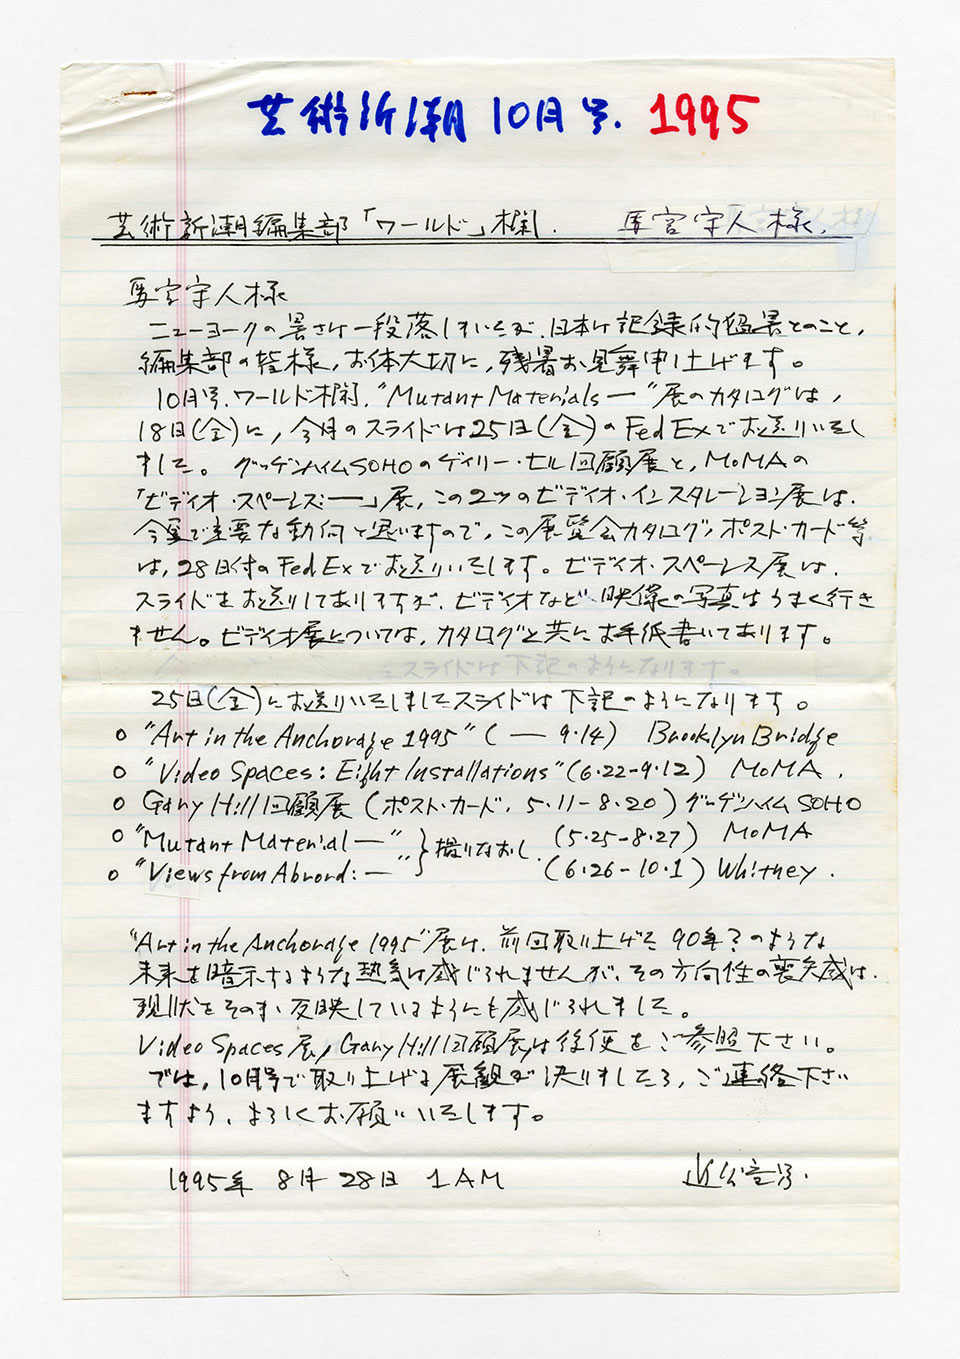 芸術新潮 10月号. 1995
芸術新潮編集部「ワールド」欄. 馬宮守人様.
馬宮守人様
ニューヨークの暑さは一段落しましたが、日本は記録的猛暑とのこと,
編集部の皆様, お体大切に, 残暑お見舞申し上げます。
10月号. ワールド欄, "Mutant Materials ー"展のカタログは,
18日(金)に, 今月のスライドは25日(金)のFedExでお送りいたし
ました。グッゲンハイムSOHOのゲイリー・ヒル回顧展と, MoMAの
「ビディオ・スペーシズ:ー」展, この2つのビディオ・インスタレーション展は.
今夏で重要な動向と思いますので, この展覧会カタログ, ポスト・カード等
は, 28日付のFedExでお送りいたします。ビディオ・スペーレス展は.
スライドをお送りしてありますが, ビディオなど映像の写真はうまく行き
ません。ビディオ展については, カタログと共にお手紙書いてあります。
スライドは下記のようになります。
25日(金)にお送りいたしましたスライドは下記のようになります。
○ "Art in the Anchorage 1995" ( ー 9・14) Brooklyn Bridge
○ "Video Spaces: Eight Installations" (6・22-9・12) MoMA.
○ Gary Hill回顧展 (ポスト・カード. 5・11-8・20) グッゲンハイムSOHO
○ "Mutant Material ー" } 撮りなおし. (5・25-8・27) MoMA
○ "Views from Abrord: ー" (6・26-10・1) Whitney.
"Art in the Anchorage 1995"展は, 前回取り上げた90年?のような
未来を暗示するような熱気は感じられませんが, その方向性の喪失感は.
現状をそのまゝ反映しているようにも感じられました。
Video Spaces展, Gary Hill回顧展は後便をご参照下さい。
では, 10月号で取り上げる展観が決りましたら, ご連絡下さい
ますよう, よろしくお願いいたします。
1995年 8月 28日 1AM